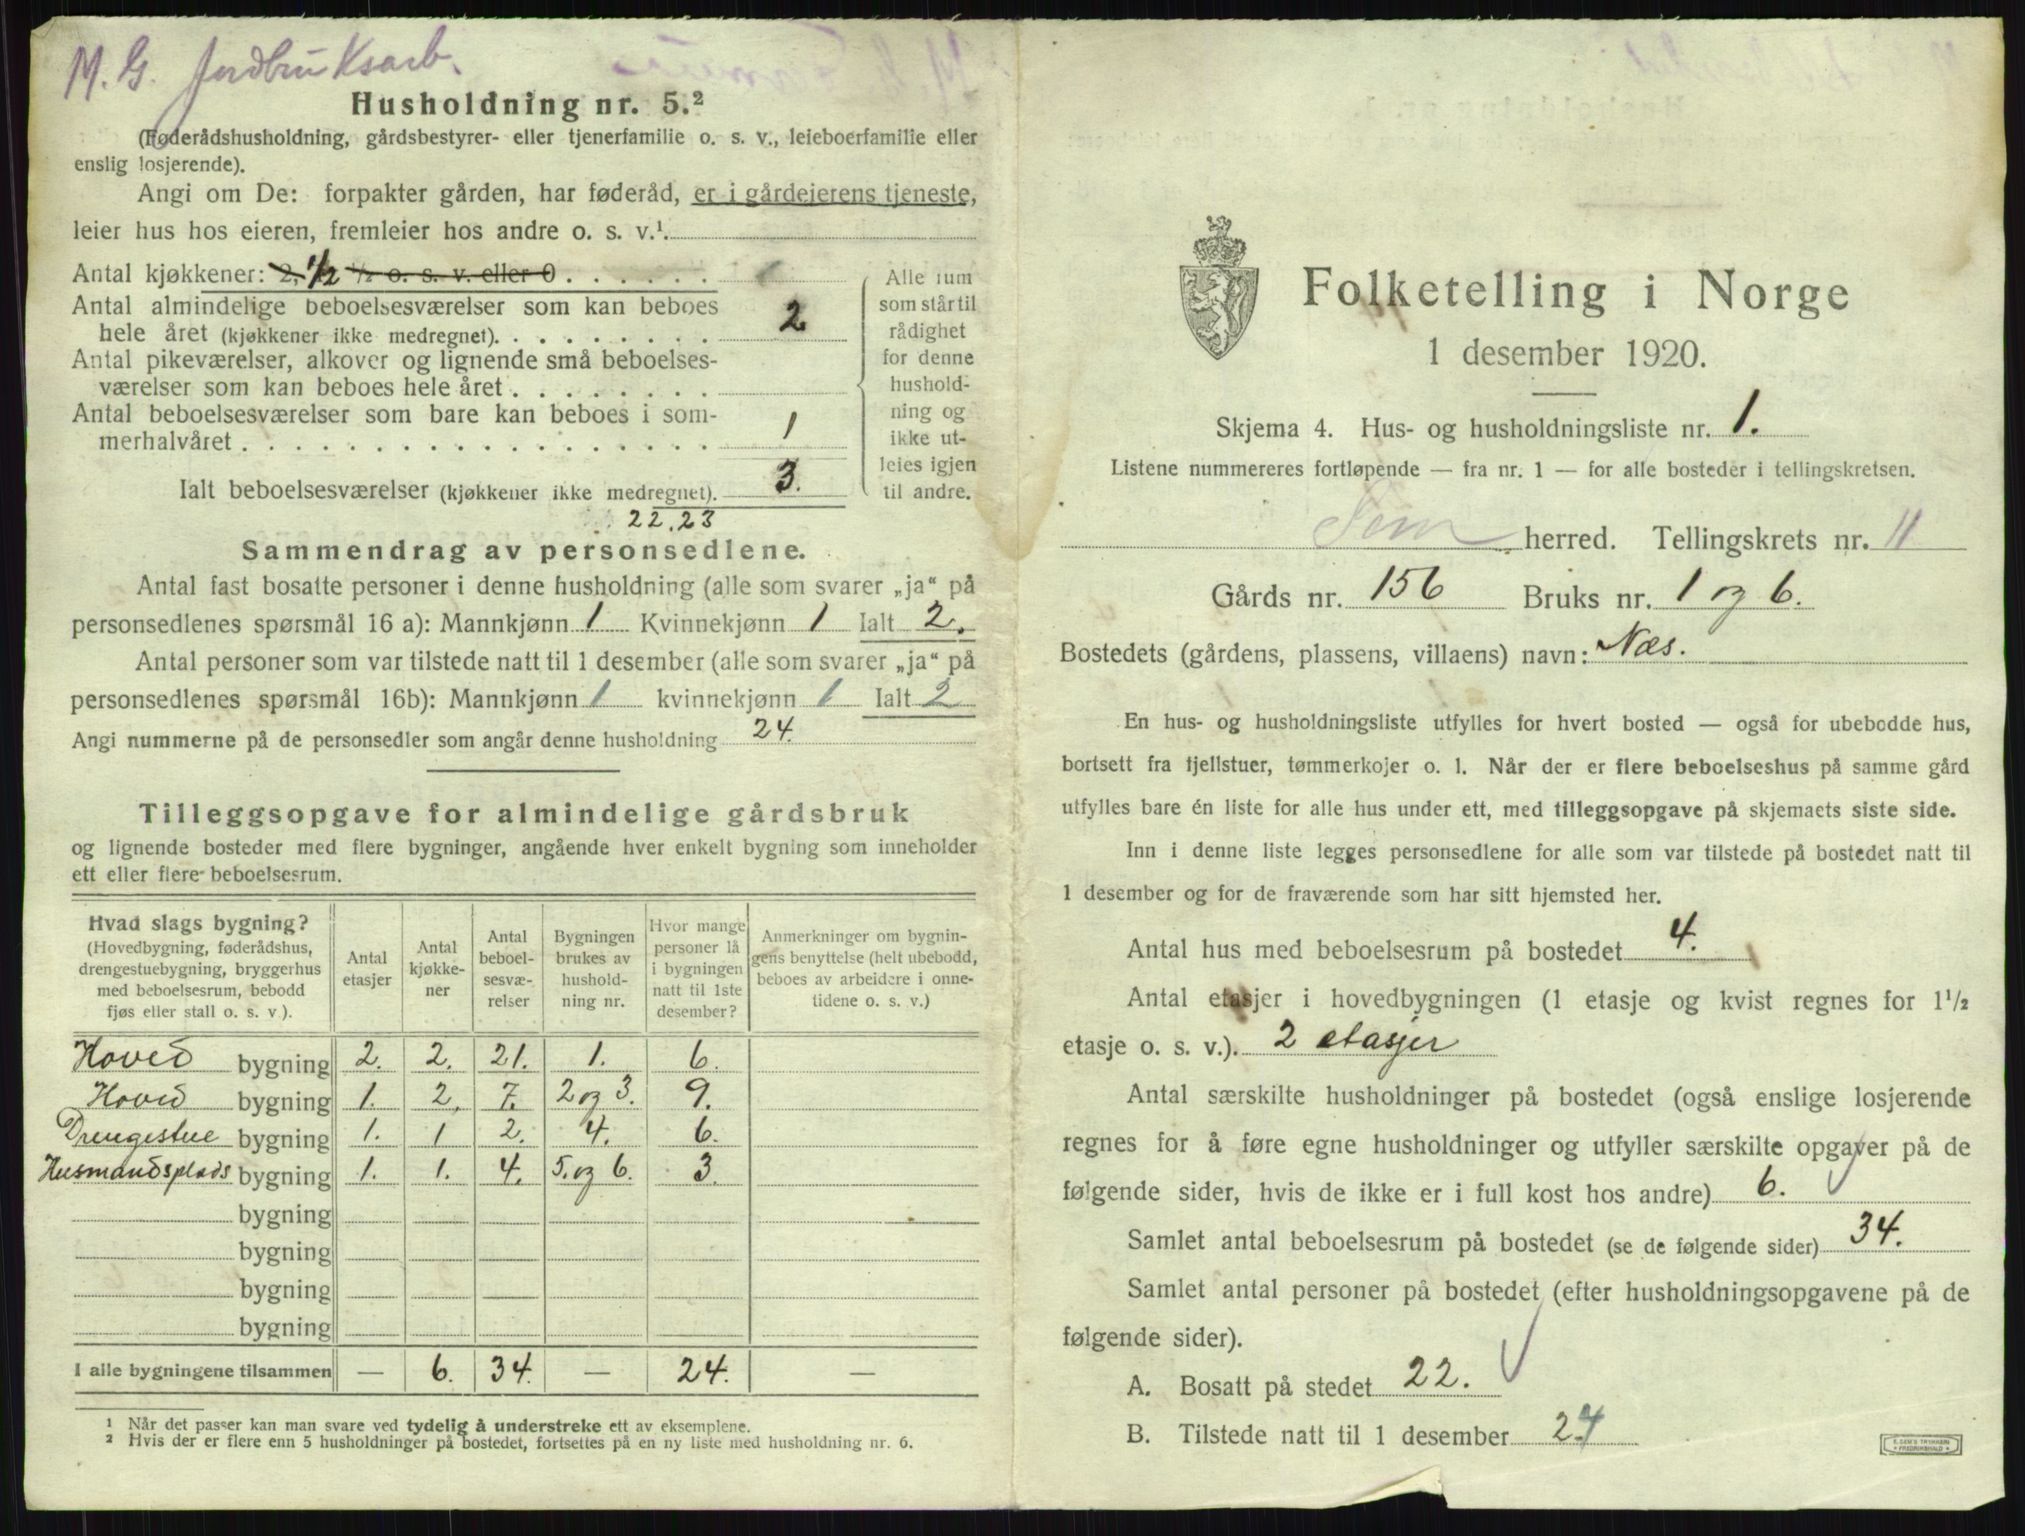 M. G. Jordbruksarb.
Husholdning nr. 5.²
(Føderådshusholdning, gårdsbestyrer- eller tjenerfamilie o. s. v., leieboerfamilie eller
enslig losjerende).
Angi om De: forpakter gården, har føderåd, er i gårdeierens tjeneste,
leier hus hos eieren, fremleier hos andre o. s. v.¹
Antal kjøkkener: 2, 1/2 ½ o. s. v. eller 0
Antal almindelige beboelsesværelser som kan beboes
hele året (kjøkkener ikke medregnet). 2
Antal pikeværelser, alkover og lignende små beboelses-
værelser som kan beboes hele året
Antal beboelsesværelser som bare kan beboes i som-
merhalvåret 1
Ialt beboelsesværelser (kjøkkener ikke medregnet). 3.
Alle rum
som står til
rådighet
for denne
hushold-
ning og
ikke ut-
leies igjen
til andre.
22, 23
Sammendrag av personsedlene.
Antal fast bosatte personer i denne husholdning (alle som svarer „ja“ på
personsedlenes spørsmål 16 a): Mannkjønn 1 Kvinnekjønn 1 Ialt 2.
Antal personer som var tilstede natt til 1 desember (alle som svarer „ja“ på
personsedlenes spørsmål 16b): Mannkjønn 1 kvinnekjønn 1 Ialt 2
Angi nummerne på de personsedler som angår denne husholdning 24.
Tilleggsopgave for almindelige gårdsbruk
og lignende bosteder med flere bygninger, angående hver enkelt bygning som inneholder
ett eller flere beboelsesrum.
Hvad slags bygning?
(Hovedbygning, føderådshus,
drengestuebygning, bryggerhus
med beboelsesrum, bebodd
fjøs eller stall o. s. v.).
Antal
etasjer
Antal
kjøkke-
ner
Antal
beboel-
sesvæ-
relser
Bygningen
brukes av
hushold-
ning nr.
Hvor mange
personer lå
i bygningen
natt til 1ste
desember?
Anmerkninger om bygnin-
gens benyttelse (helt ubebodd,
beboes av arbeidere i onne-
tidene o. s. v.)
Hoved bygning 2. 2. 21. 1. 6.
Hoved bygning 1. 2. 7. 2 og 3. 9.
Drengestue bygning 1. 1 2. 4. 6.
Husmandsplads bygning 1. 1. 4. 5. og 6. 3.
bygning
bygning
bygning
bygning
I alle bygningene tilsammen — 6. 34. — 24. —
¹ Når det passer kan man svare ved tydelig å understreke ett av eksemplene.
² Hvis der er flere enn 5 husholdninger på bostedet, fortsettes på en ny liste med husholdning nr. 6.
Folketelling i Norge
1 desember 1920.
Skjema 4. Hus- og husholdningsliste nr. 1.
Listene nummereres fortløpende — fra nr. 1 — for alle bosteder i tellingskretsen.
Sem herred. Tellingskrets nr. 11
Gårds nr. 156 Bruks nr. 1 og 6.
Bostedets (gårdens, plassens, villaens) navn: Næs.
En hus- og husholdningsliste utfylles for hvert bosted — også for ubebodde hus,
bortsett fra fjellstuer, tømmerkojer o. l. Når der er flere beboelseshus på samme gård
utfylles bare én liste for alle hus under ett, med tilleggsopgave på skjemaets siste side.
Inn i denne liste legges personsedlene for alle som var tilstede på bostedet natt til
1 desember og for de fraværende som har sitt hjemsted her.
Antal hus med beboelsesrum på bostedet 4.
Antal etasjer i hovedbygningen (1 etasje og kvist regnes for 1½
etasje o. s. v.). 2 etasjer
Antal særskilte husholdninger på bostedet (også enslige losjerende
regnes for å føre egne husholdninger og utfyller særskilte opgaver på de
følgende sider, hvis de ikke er i full kost hos andre) 6.
Samlet antal beboelsesrum på bostedet (se de følgende sider) 34.
Samlet antal personer på bostedet (efter husholdningsopgavene på de
følgende sider).
A. Bosatt på stedet 22.
B. Tilstede natt til 1 desember 24
E. SEM'S TRYKKERI
FREDRIKSHALD